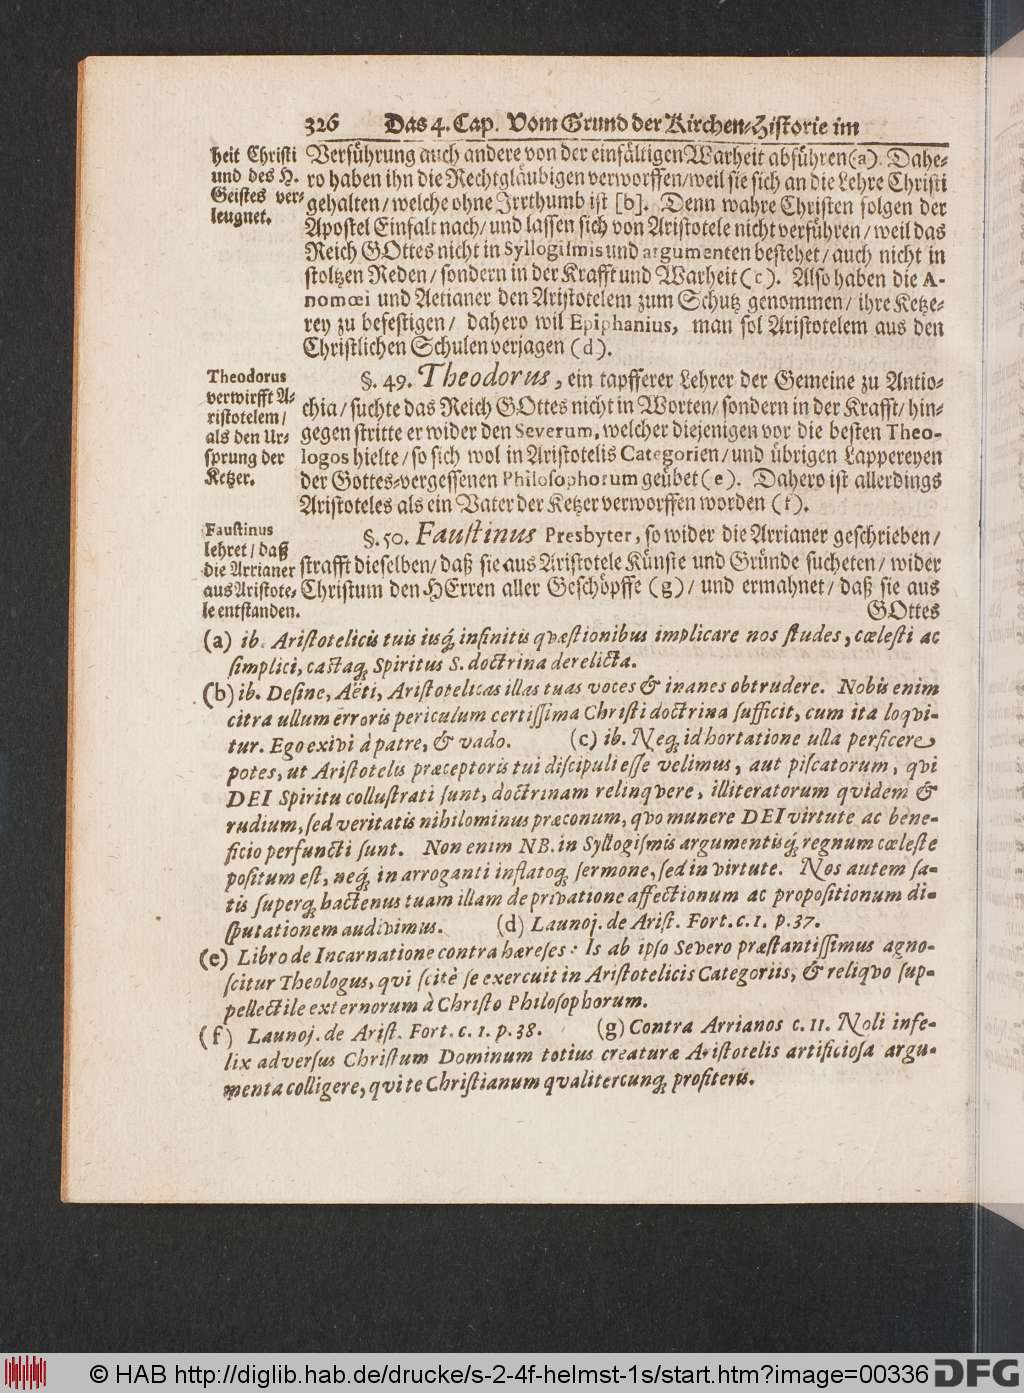 326 Das 4. Cap. Vom Grund der Kirchen-Historie im
heit Christi
und des H.
Geistes ver-
leugnet.
Verführung auch andere von der einfältigen Warheit abführen (a). Dahe-
ro haben ihn die Rechtgläubigen verworffen/ weil sie sich an die Lehre Christi
gehalten/ welche ohne Irrthumb ist [b]. Denn wahre Christen folgen der
Apostel Einfalt nach/ und lassen sich von Aristotele nicht verführen/ weil das
Reich GOttes nicht in Syllogiſmis und argumenten bestehet/ auch nicht in
stoltzen Reden/ sondern in der Krafft und Warheit (c). Also haben die A-
nomœi und Aetianer den Aristotelem zum Schutz genommen/ ihre Ketze-
rey zu befestigen/ dahero wil Epiphanius, man sol Aristotelem aus den
Christlichen Schulen verjagen (d).
Theodorus
verwirfft A-
ristotelem/
als den Ur-
sprung der
Ketzer.
§. 49. Theodorus, ein tapfferer Lehrer der Gemeine zu Antio-
chia/ suchte das Reich GOttes nicht in Worten/ sondern in der Krafft/ hin-
gegen stritte er wider den Severum, welcher diejenigen vor die besten Theo-
logos hielte/ so sich wol in Aristotelis Categorien/ und übrigen Lappereyen
der Gottes-vergessenen Philoſophorum geübet (e). Dahero ist allerdings
Aristoteles als ein Vater der Ketzer verworffen worden (f).
Faustinus
lehret/ daß
die Arrianer
aus Aristote-
le entstanden.
§. 50. Fauſtinus Presbyter, so wider die Arrianer geschrieben/
strafft dieselben/ daß sie aus Aristotele Künste und Gründe sucheten/ wider
Christum den HErren aller Geschöpffe (g)/ und ermahnet/ daß sie aus
GOttes
(a) ib. Ariſtotelicis tuis iisq́; infinitis qvæſtionibus implicare nos ſtudes, cœleſti ac
ſimplici, caſtaq; Spiritus S. doctrina derelicta.
(b) ib. Deſine, Aëti, Ariſtotelicas illas tuas voces & inanes obtrudere. Nobis enim
citra ullum erroris periculum certiſſima Chriſti doctrina ſufficit, cum ita loqvi-
tur. Ego exivi à patre, & vado. (c) ib. Neq; id hortatione ulla perficere
potes, ut Ariſtotelis præceptoris tui diſcipuli eſſe velimus, aut piſcatorum, qvi
DEI Spiritu colluſtrati ſunt, doctrinam relinqvere, illiteratorum qvidem &
rudium, ſed veritatis nihilominus præconum, qvo munere DEI virtute ac bene-
ficio perfuncti ſunt. Non enim NB. in Syllogiſmis argumentisq́; regnum cœleſte
poſitum eſt, neq́; in arroganti inflatoq; ſermone, ſed in virtute. Nos autem ſa-
tis ſuperq; hactenus tuam illam de privatione affectionum ac propoſitionum di-
ſputationem audivimus. (d) Launoj. de Ariſt. Fort. c. 1. p. 37.
(e) Libro de Incarnatione contra hæreſes: Is ab ipſo Severo præſtantiſſimus agno-
ſcitur Theologus, qvi ſcitè ſe exercuit in Ariſtotelicis Categoriis, & reliqvo ſup-
pellectile externorum à Chriſto Philoſophorum.
(f) Launoj. de Ariſt. Fort. c. 1. p. 38. (g) Contra Arrianos c. 11. Noli infe-
lix adverſus Chriſtum Dominum totius creaturæ Ariſtotelis artificioſa argu-
menta colligere, qvi te Chriſtianum qvalitercunq; profiteris.
© HAB http://diglib.hab.de/drucke/s-2-4f-helmst-1s/start.htm?image=00336
DFG